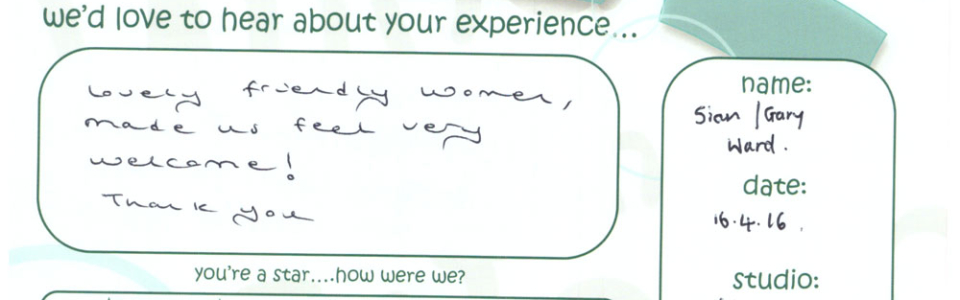 we'd love to hear about your experience...
Lovely friendly women,
made us feel very
welcome!
Thank you
you're a star....how were we?
name:
Sian / Gary
Ward.
date:
16.4.16.
studio: